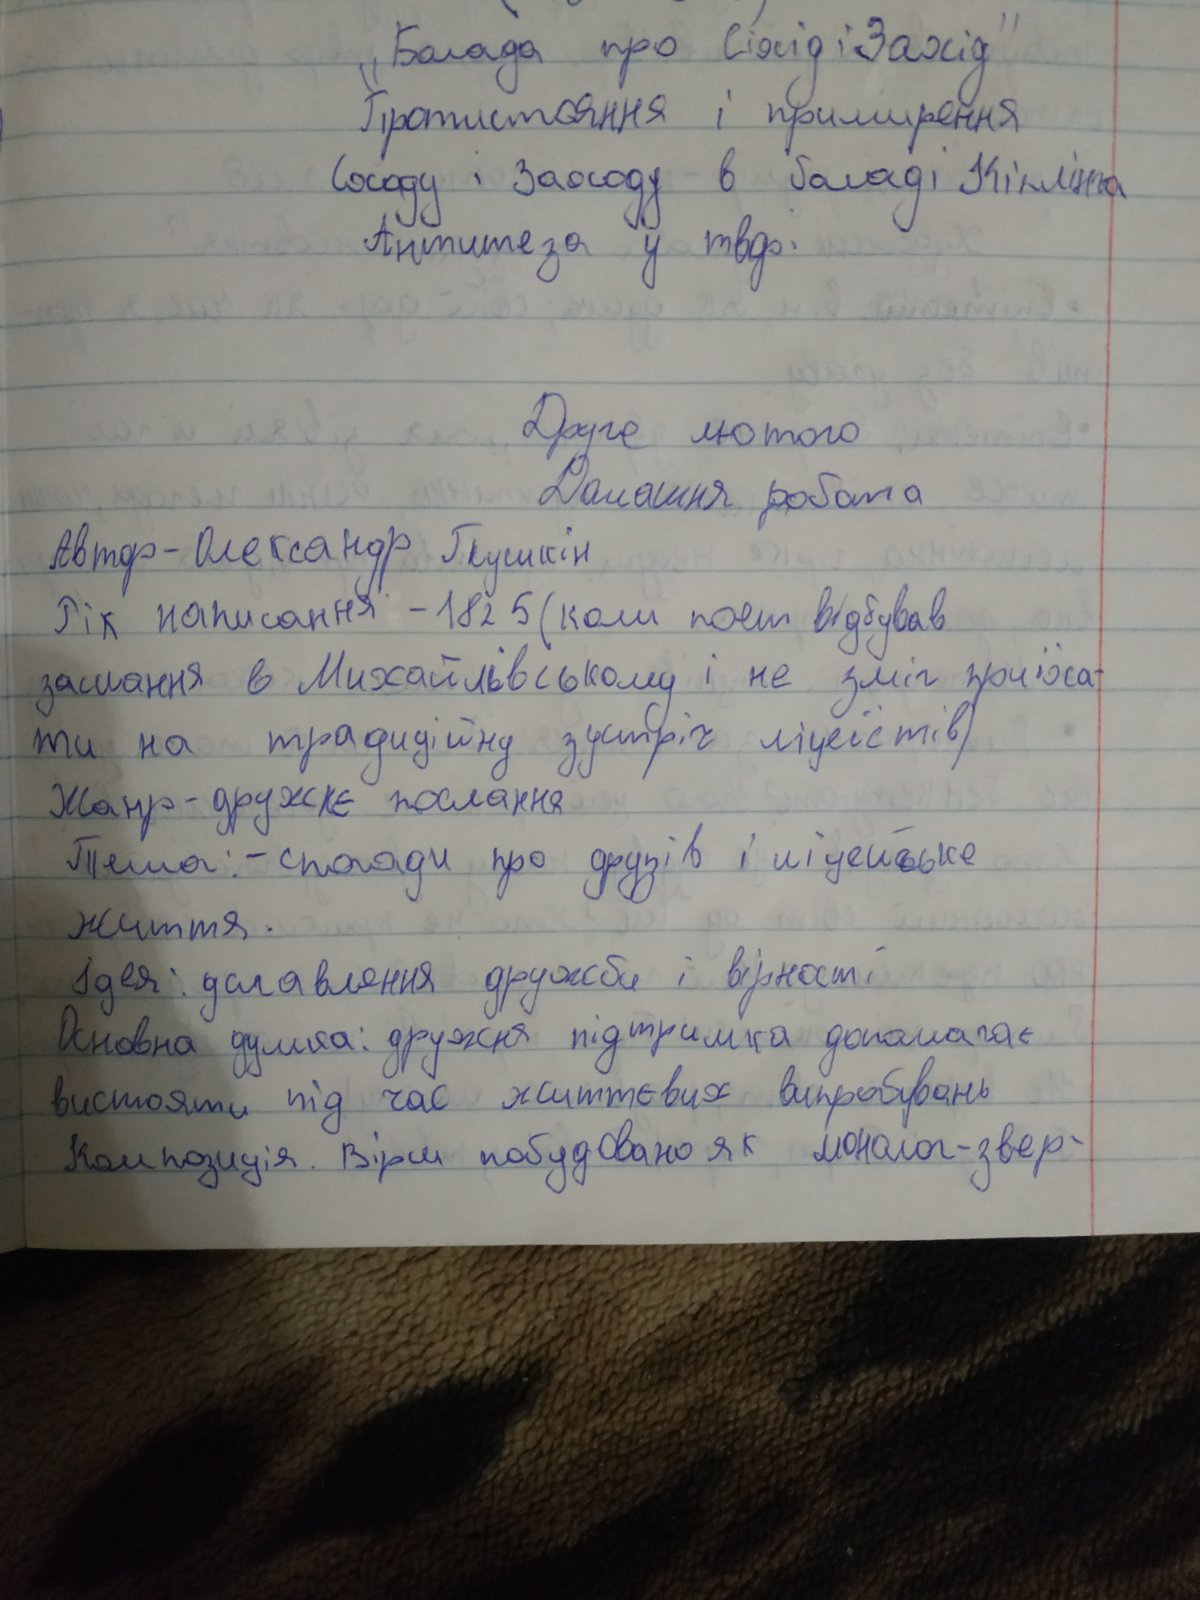 „Балада про Східі Захід"
Протистояння і примирення
Сходу і Заходу в баладі Кіплінга
Антитеза у твор.
Друге лютого
Домашня робота
Автор - Олександр Пушкін
Рік написання - 1825 (коли поет відбував
заслання в Михайлівському і не зміг приїха-
ти на традиційну зустріч ліцеїстів)
Жанр - дружнє послання
Тема: - спогади про друзів і ліцейське
життя.
Ідея: уславлення дружби і вірності
Основна думка: дружня підтримка допомагає
вистояти під час життєвих випробувань
Композиція. Вірш побудовано як монолог-звер-